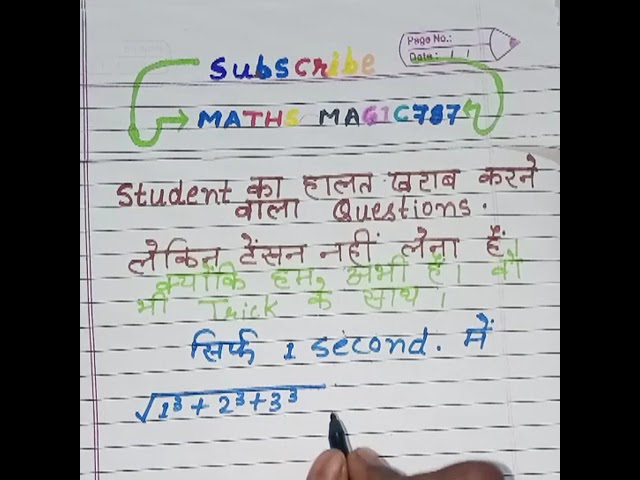 Page No.:
Date: / /
Subscribe
MATHS MAGIC787
Student का हालत खराब करने
वाला Questions.
लेकिन टेंसन नहीं लेना हैं।
क्योंकि हम, अभी हैं। वो
भी Trick के साथ।
सिर्फ 1 second. में
√1³ + 2³ + 3³